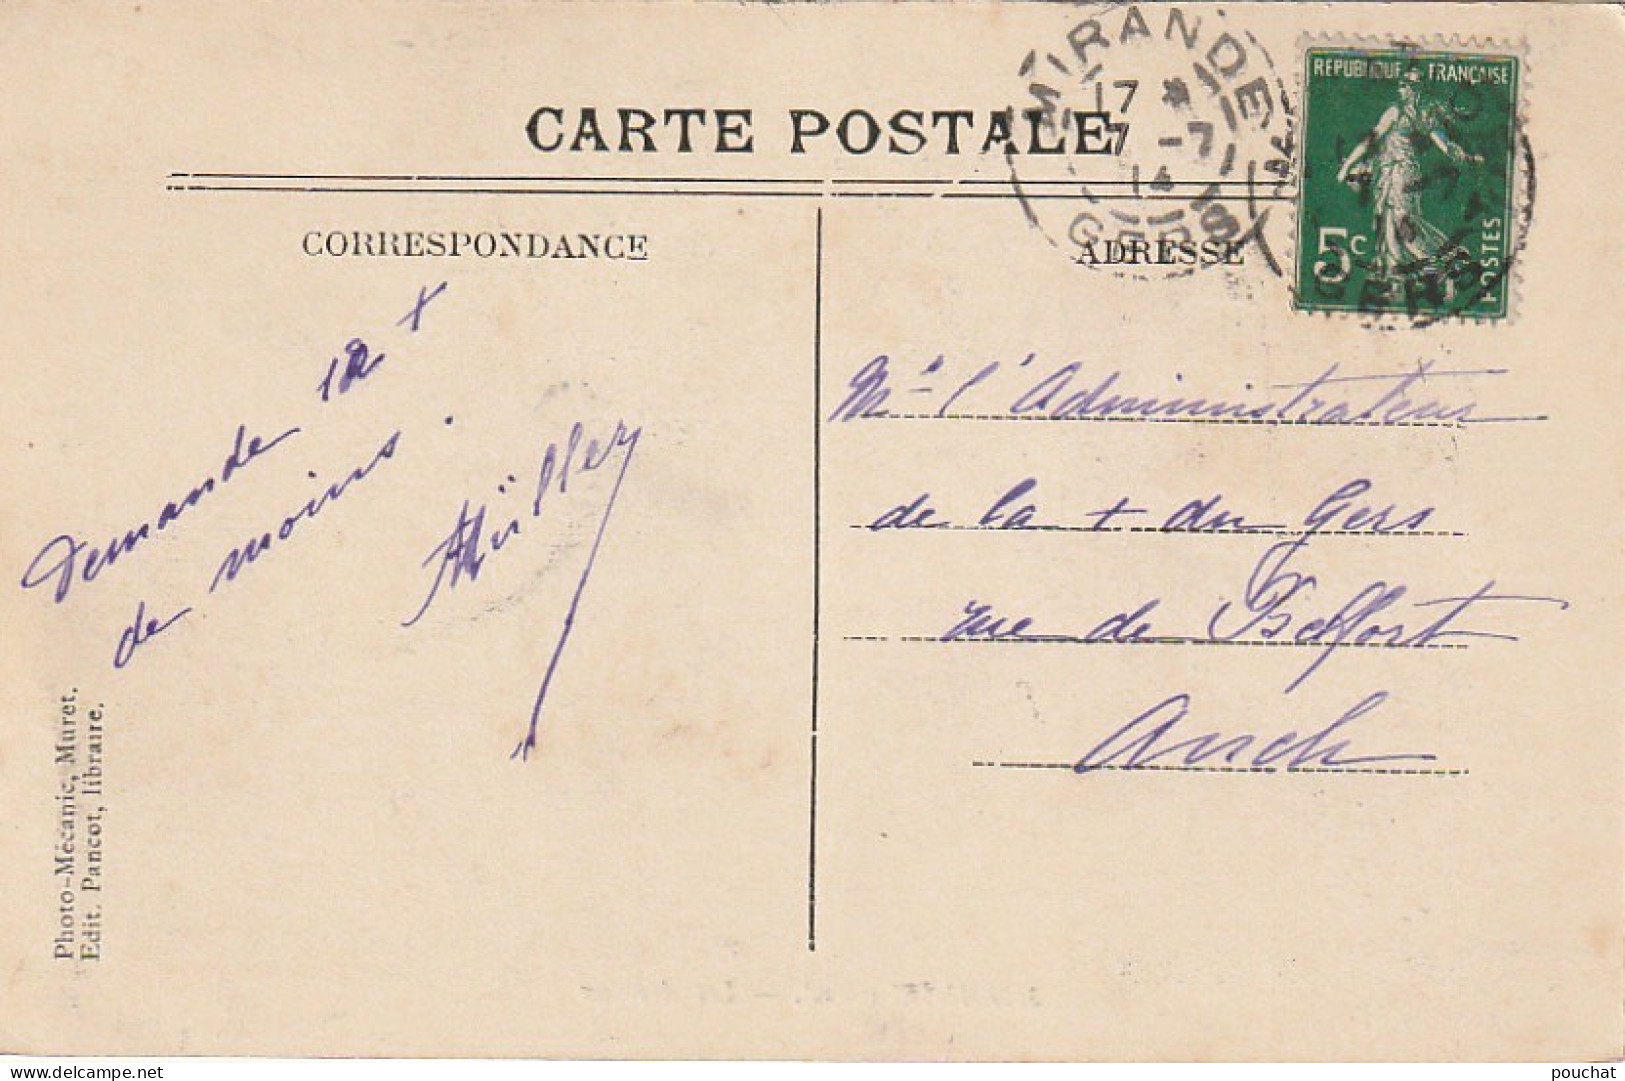 CARTE POSTALE
MIRANDE
17 *
7 -7
14
GERS
REPUBLIQUE FRANÇAISE
5c
POSTES
GERS
CORRESPONDANCE
ADRESSE
Demande 12 +
de moins.
Müller
Mr l'Administrateur
de la + du Gers
rue de Belfort
Auch
Photo-Mécanic, Muret.
Edit. Pancot, libraire.
delcampe.net
pouchat